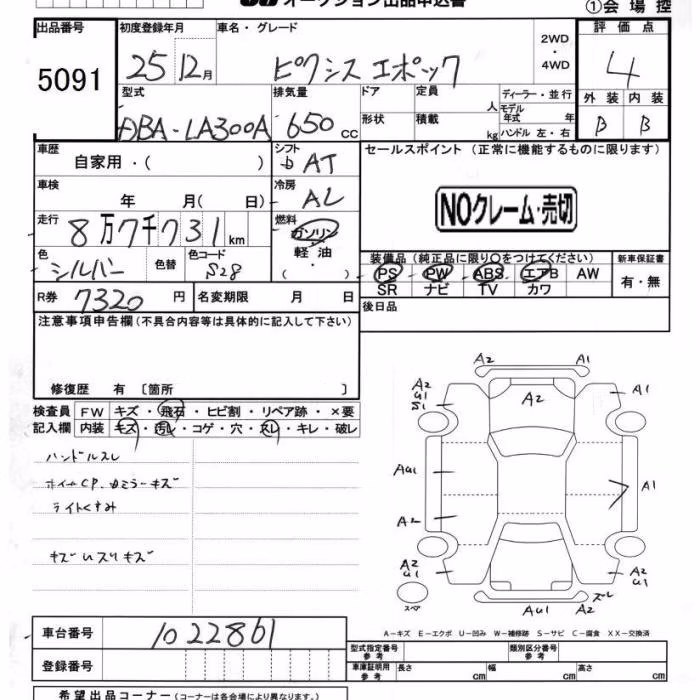 オークション出品申込書
①会場控
出品番号 5091
初度登録年月 25 12月
車名・グレード ピクシス エポック
2WD・4WD
評価点 4
外装 B 内装 B
型式 DBA-LA300A
排気量 650 cc
ドア 形状
定員 人 積載 kg
ディーラー・並行
モデル年式 年
ハンドル 左・右
車歴 自家用・( )
シフト AT
セールスポイント (正常に機能するものに限ります)
車検 年 月( 日)
冷房 AC
NOクレーム・売切
走行 8万7千731km
燃料 ガソリン 軽油 ( ・ )
色 シルバー 色替 色コード S28
装備品 (純正品に限り○をつけてください) 新車保証書
PS PW ABS エアB AW 有・無
SR ナビ TV カワ
R券 7320円 名変期限 月 日
後日品
注意事項申告欄 (不具合内容等は具体的に記入して下さい)
修復歴 有 〔箇所 〕
検査員 FW キズ・飛石・ヒビ割・リペア跡・×要
記入欄 内装 キズ・汚レ・コゲ・穴・スレ・キレ・破レ
ハンドルスレ
ホイールCP.カミラーキズ
ライトくすみ
キズ いスリキズ
A2 A1
A2 U1 S1 A2 A1
AU1 A1
A2
A2 U1 A2 U1
スペア AU1 A2 ズレ
A-キズ E-エクボ U-凹み W-補修跡 S-サビ C-腐食 XX-交換済
車台番号 1022861
型式指定番号 参考 類別区分番号 参考
登録番号
車庫証明用 参考 長さ cm 幅 cm 高さ cm
希望出品コーナー (コーナーは各会場により異なります。)